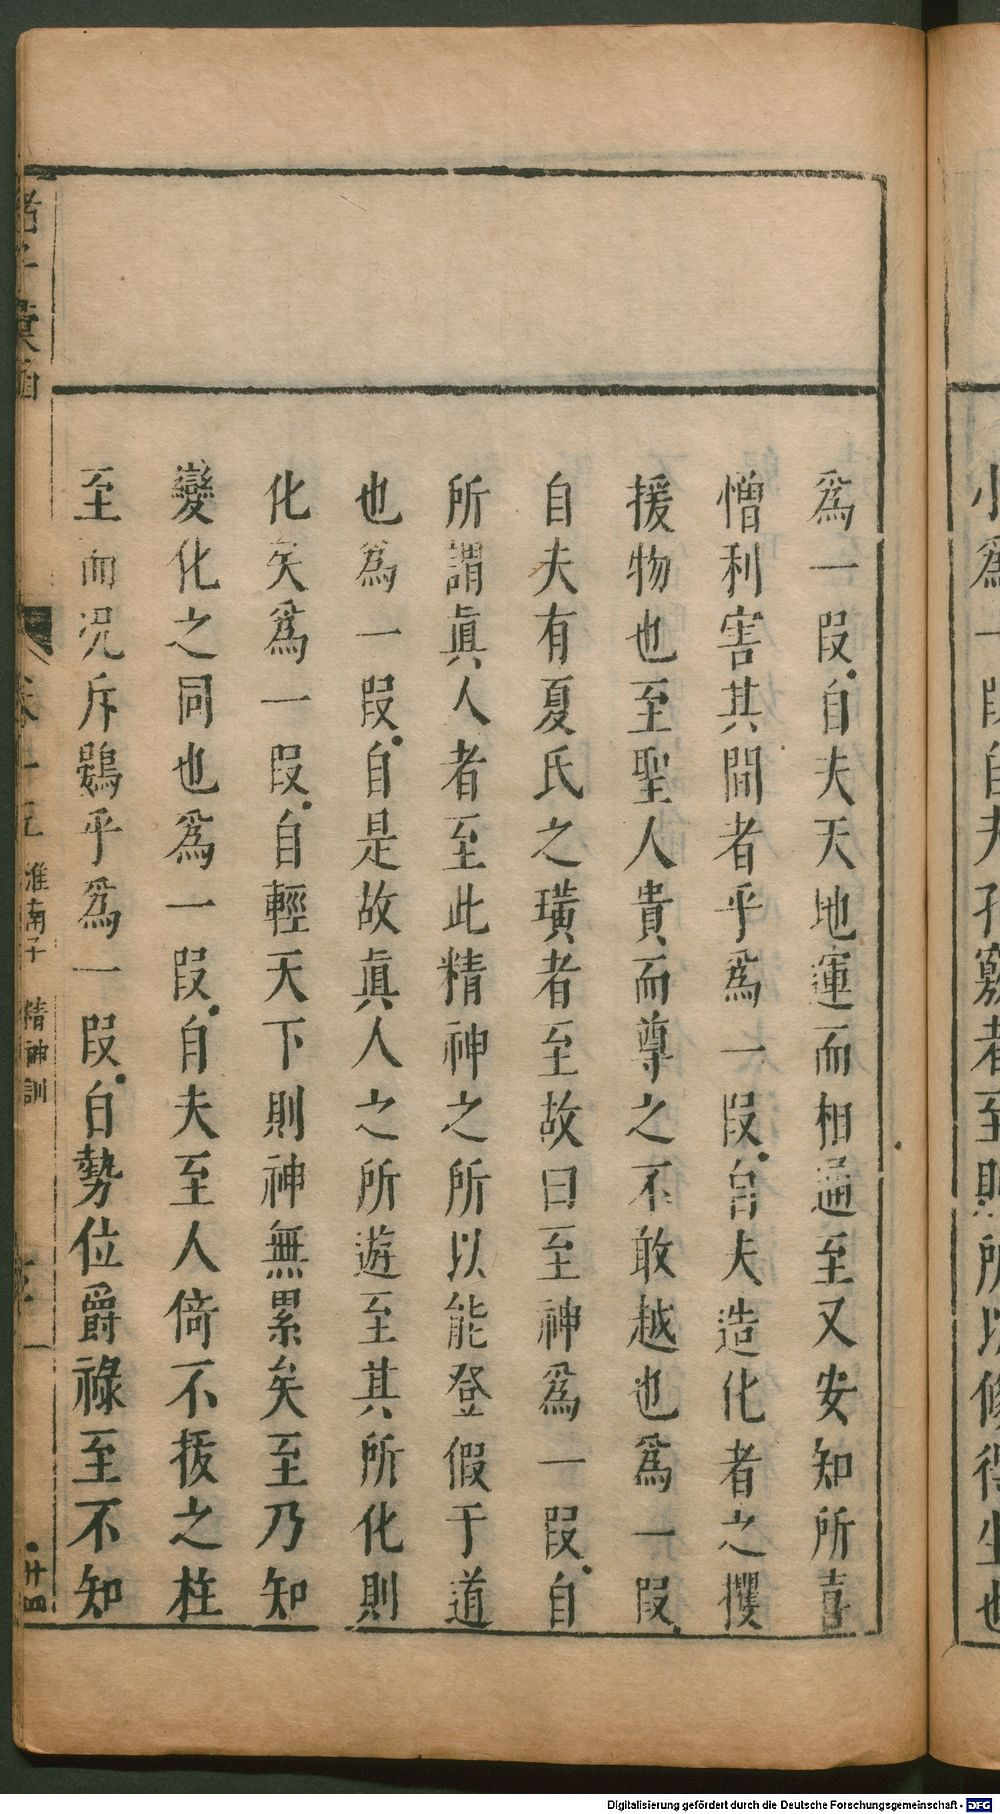 小爲一段自夫孔竅者至則所以修得生也
爲一叚自夫天地運而相通至又安知所喜
憎利害其間者乎爲一叚自夫造化者之攫
援物也至聖人貴而尊之不敢越也爲一叚
自夫有夏氏之璜者至故曰至神爲一叚自
所謂眞人者至此精神之所以能登假于道
也爲一叚自是故眞人之所遊至其所化則
化矣爲一叚自輕天下則神無累矣至乃知
變化之同也爲一叚自夫至人倚不拔之柱
至而况斥鷃乎爲一叚自勢位爵祿至不知
諸子彙函
淮南子 精神訓
廿四
Digitalisierung gefördert durch die Deutsche Forschungsgemeinschaft - DFG